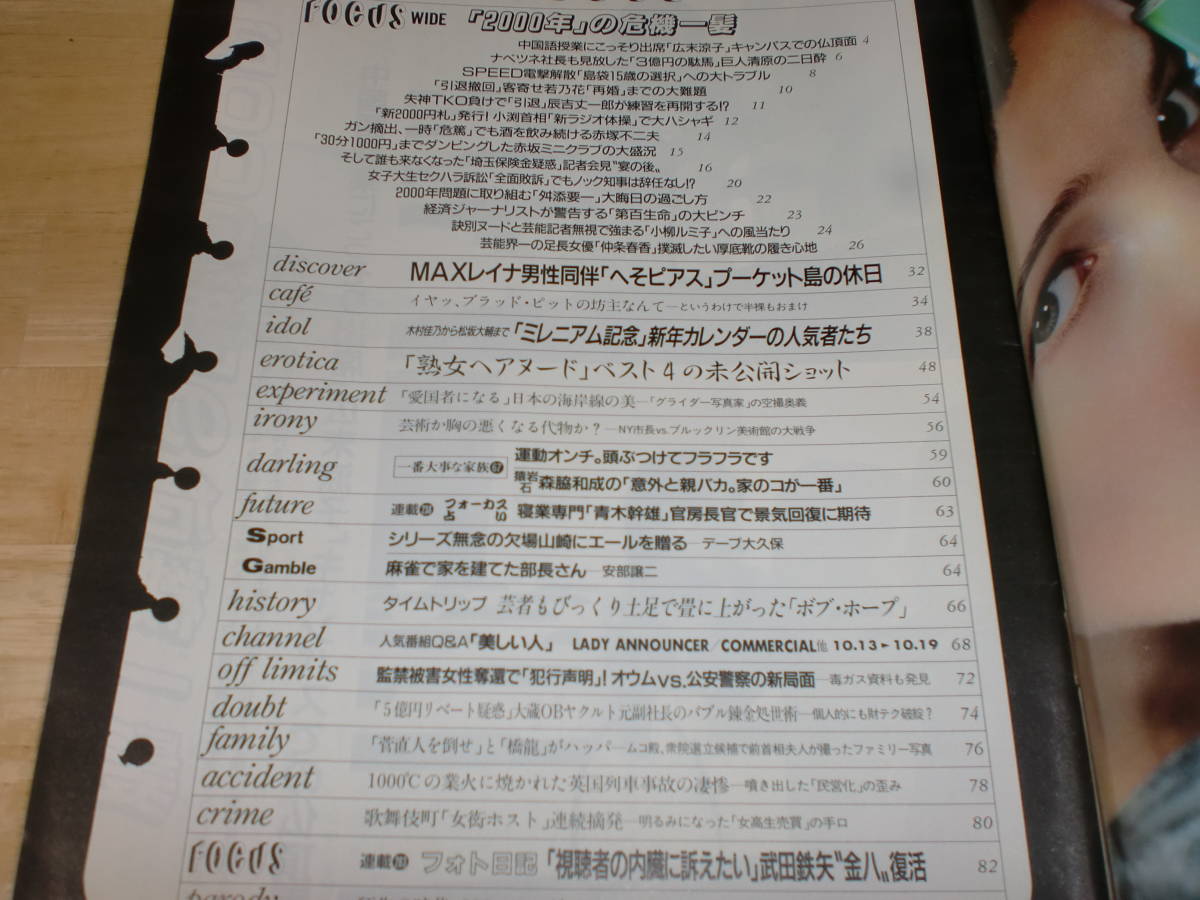 FOCUS WIDE 「2000年」の危機一髪
中国語授業にこっそり出席「広末涼子」キャンパスでの仏頂面 4
ナベツネ社長も見放した「3億円の駄馬」巨人清原の二日酔 6
SPEED電撃解散「島袋15歳の選択」への大トラブル 8
「引退撤回」客寄せ若乃花「再婚」までの大難題 10
失神TKO負けで「引退」辰吉丈一郎が練習を再開する!? 11
「新2000円札」発行!小渕首相「新ラジオ体操」で大ハシャギ 12
ガン摘出、一時「危篤」でも酒を飲み続ける赤塚不二夫 14
「30分1000円」までダンピングした赤坂ミニクラブの大盛況 15
そして誰も来なくなった「埼玉保険金疑惑」記者会見〝宴の後〟 16
女子大生セクハラ訴訟「全面敗訴」でもノック知事は辞任なし!? 20
2000年問題に取り組む「舛添要一」大晦日の過ごし方 22
経済ジャーナリストが警告する「第百生命」の大ピンチ 23
訣別ヌードと芸能記者無視で強まる「小柳ルミ子」への風当たり 24
芸能界一の足長女優「仲条春香」撲滅したい厚底靴の履き心地 26
discover MAXレイナ男性同伴「へそピアス」プーケット島の休日 32
café イヤッ、ブラッド・ピットの坊主なんて―というわけで半裸もおまけ 34
idol 木村佳乃から松坂大輔まで「ミレニアム記念」新年カレンダーの人気者たち 38
erotica 「熟女ヘアヌード」ベスト4の未公開ショット 48
experiment 「愛国者になる」日本の海岸線の美―「グライダー写真家」の空撮奥義 54
irony 芸術か胸の悪くなる代物か?―NY市長vs.ブルックリン美術館の大戦争 56
darling 一番大事な家族67 運動オンチ。頭ぶつけてフラフラです 59
猿岩石 森脇和成の「意外と親バカ。家のコが一番」 60
future 連載 フォーカス占い 寝業専門「青木幹雄」官房長官で景気回復に期待 63
Sport シリーズ無念の欠場山崎にエールを贈る ―デーブ大久保 64
Gamble 麻雀で家を建てた部長さん ―安部譲二 64
history タイムトリップ 芸者もびっくり土足で畳に上がった「ボブ・ホープ」 66
channel 人気番組Q&A「美しい人」 LADY ANNOUNCER/COMMERCIAL他 10.13►10.19 68
off limits 監禁被害女性奪還で「犯行声明」!オウムvs.公安警察の新局面―毒ガス資料も発見 72
doubt 「5億円リベート疑惑」大蔵OBヤクルト元副社長のバブル錬金処世術―個人的にも財テク破綻? 74
family 「菅直人を倒せ」と「橋龍」がハッパ―ムコ殿、衆院選立候補で前首相夫人が撮ったファミリー写真 76
accident 1000℃の業火に焼かれた英国列車事故の凄惨―噴き出した「民営化」の歪み 78
crime 歌舞伎町「女衒ホスト」連続摘発―明るみになった「女高生売買」の手口 80
FOCUS 連載 フォト日記 「視聴者の内臓に訴えたい」武田鉄矢〝金八〟復活 82
parody